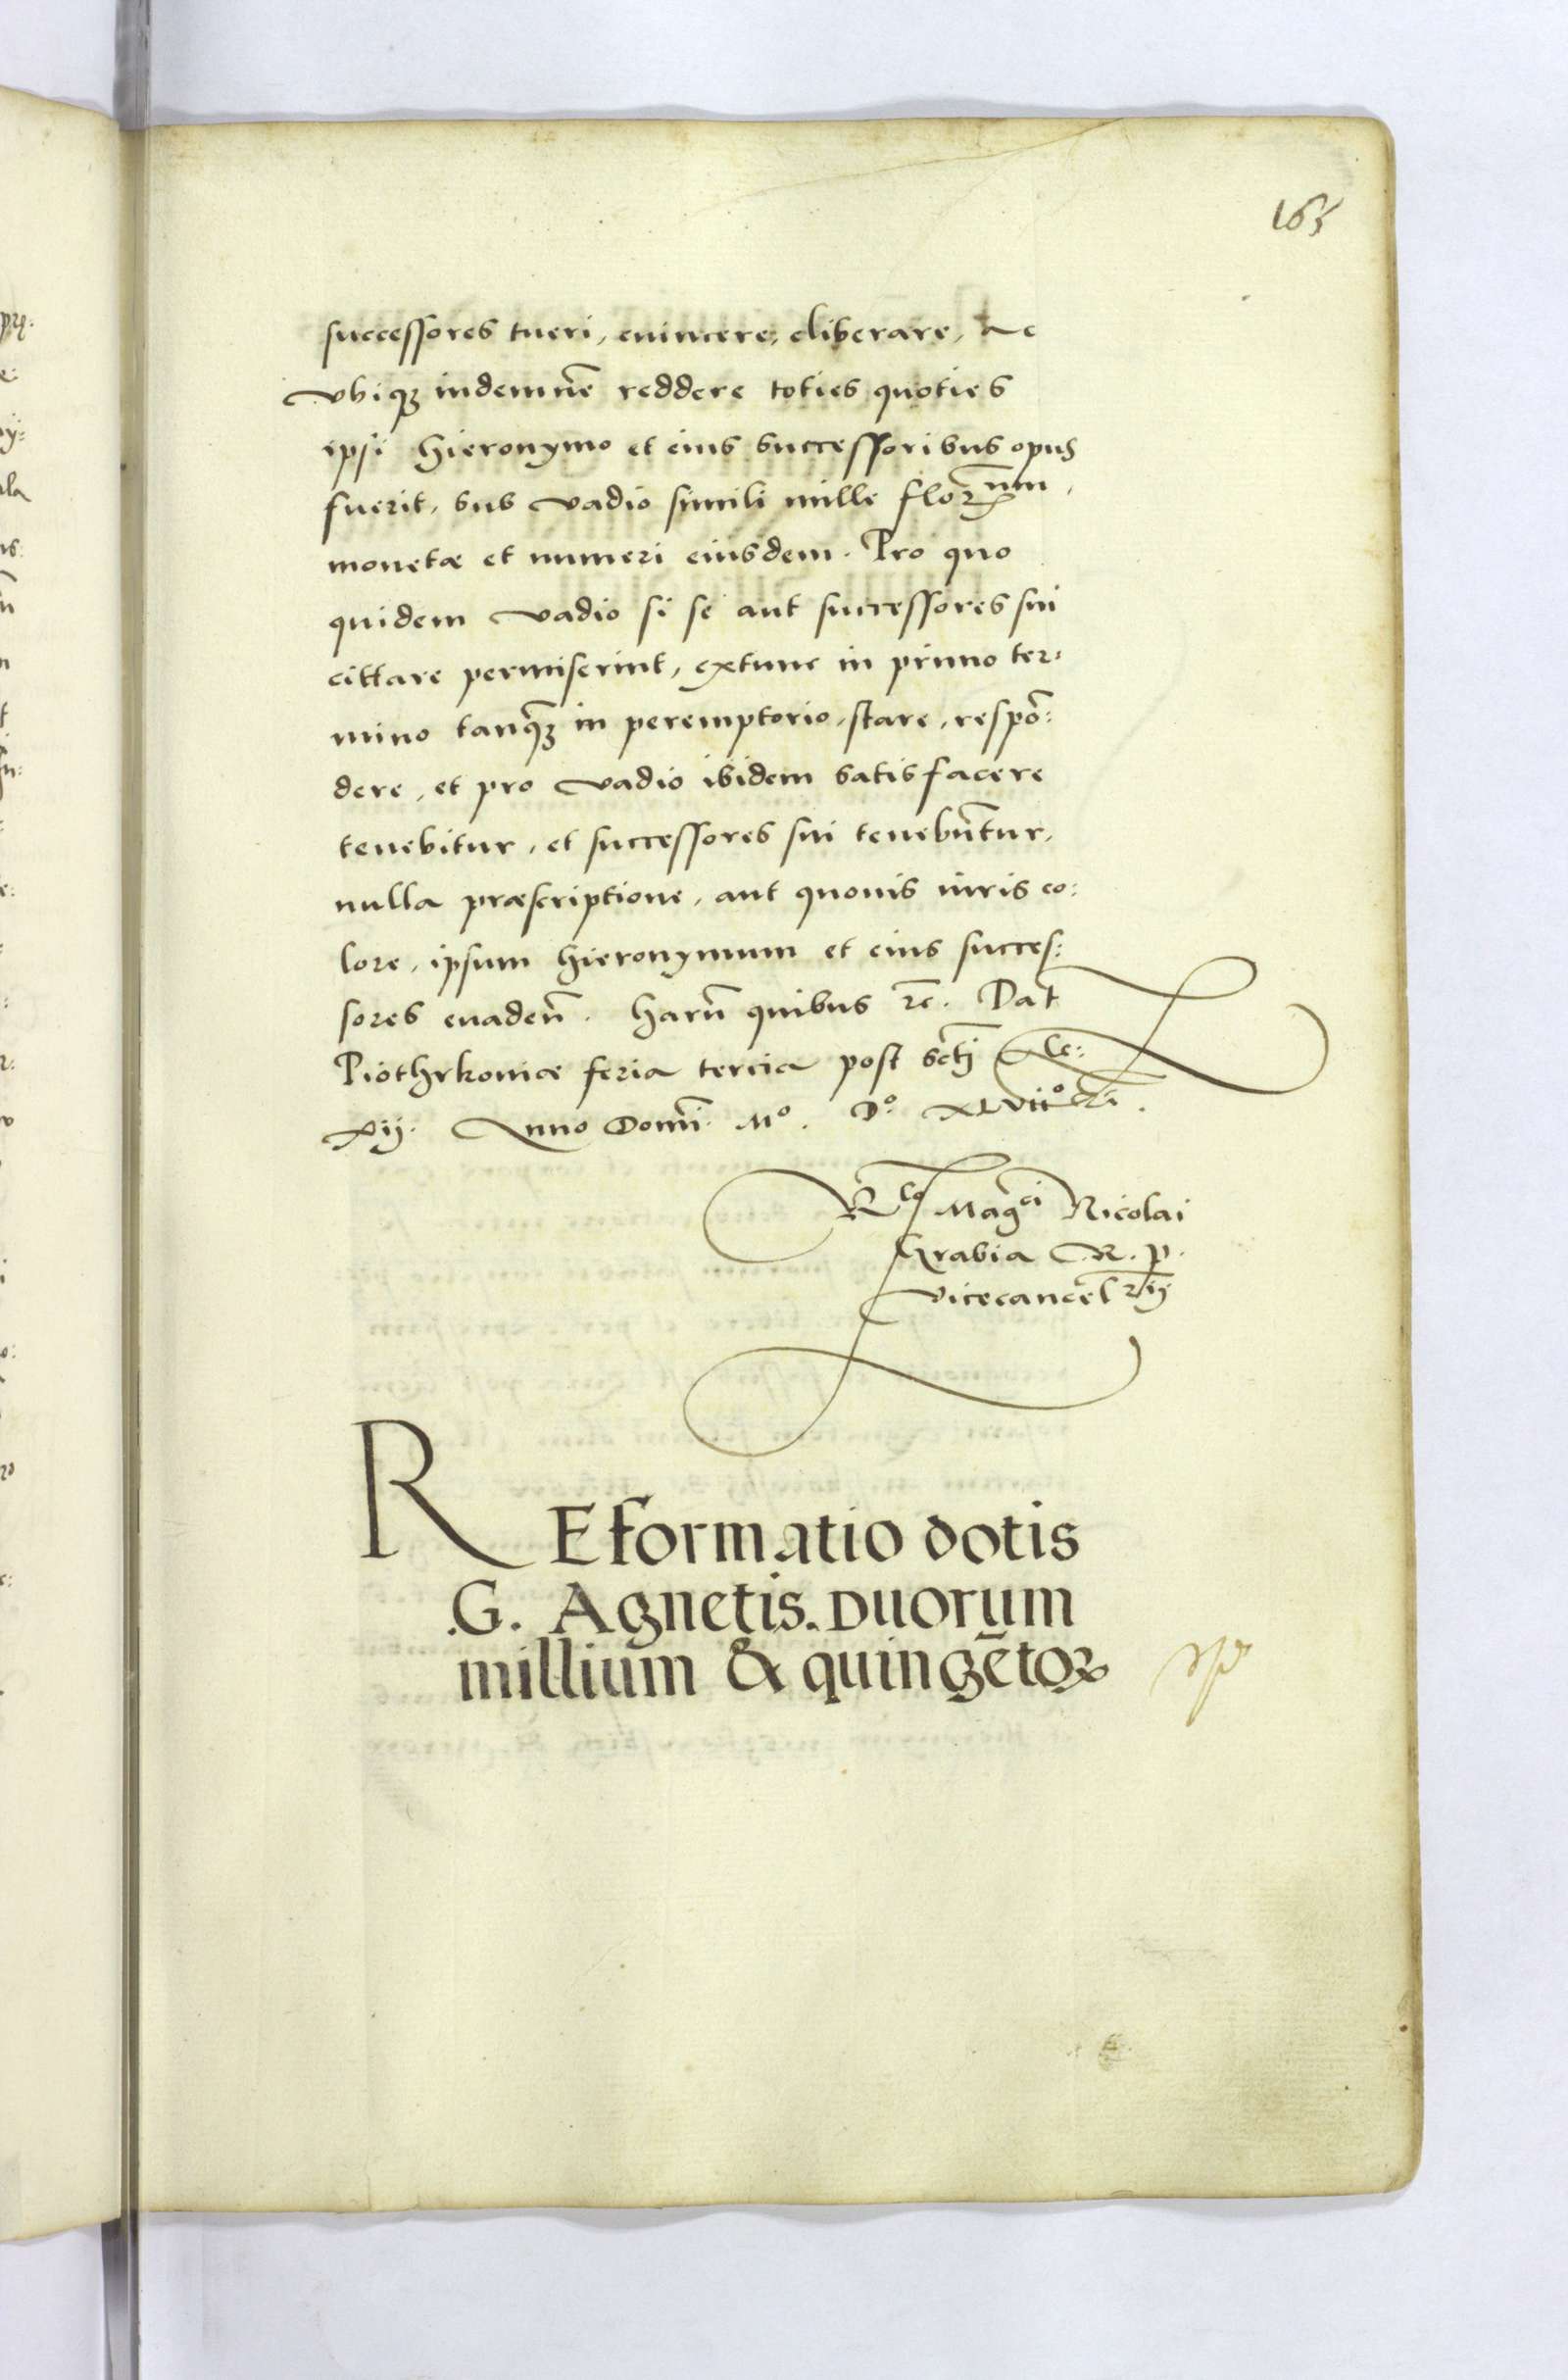 163
successores tueri, euincere, eliberare, ac
vbiqȝ indemnē reddere toties quoties
ipsi Hieronymo et eius successoribus opus
fuerit, sub vadio simili mille florenum,
monetæ et numeri eiusdem. Pro quo
quidem vadio si se aut successores sui
cittare permiserint, extunc in primo ter:
mino tanq̃ȝ in peremptorio, stare, respō:
dere, et pro vadio ibidem satisfacere
tenebitur, et successores sui tenebūtur,
nulla præscriptione, aut quouis iuris co:
lore, ipsum Hieronymum et eius succes:
sores euadeñ. Harū quibus rc̄. Dat
Piothrkoniæ feria tercia post scti Ale:
xij. Anno Domī. Mº. Dº. XLVIIº
Rlō Magci Nicolai
Grabia R. p.
vicecancelrij
REformatio dotis
.G. Agnetis. Duorum
millium & quingētoꝝ